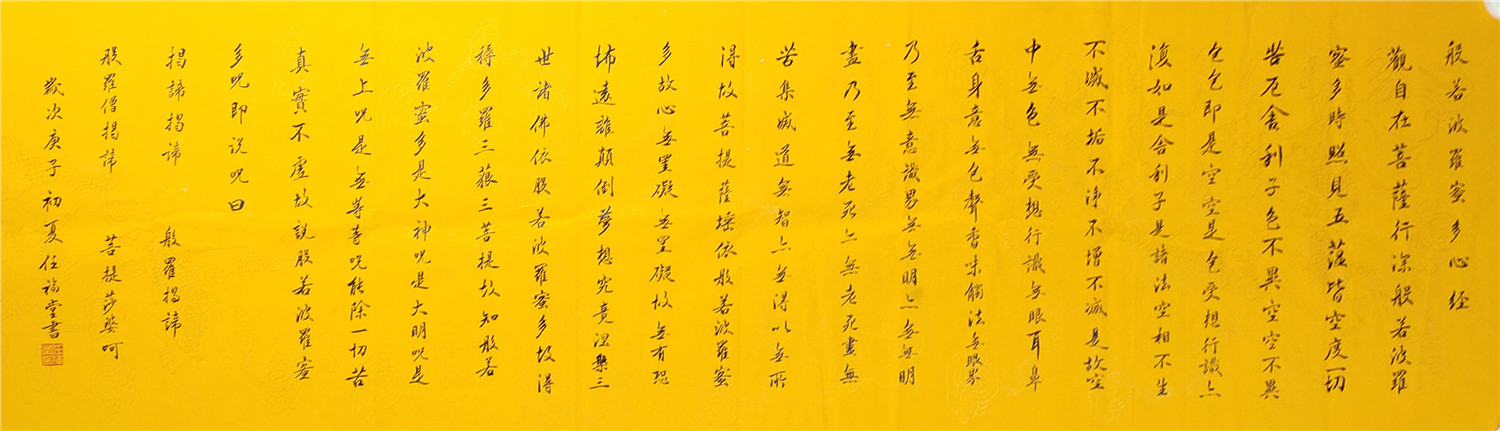 般若波羅蜜多心经
觀自在菩薩行深般若波羅
蜜多時照見五蕴皆空度一切
苦厄舍利子色不異空空不異
色色即是空空是色受想行識亦
復如是舍利子是諸法空相不生
不滅不垢不净不增不减是故空
中無色無受想行識無眼耳鼻
舌身意無色聲香味觸法無眼界
乃至無意識界無無明亦無無明
盡乃至無老死亦無老死盡無
苦集滅道無智亦無得以無所
得故菩提薩埵依般若波羅蜜
多故心無罣礙無罣礙故無有恐
怖遠離顛倒夢想究竟涅槃三
世諸佛依般若波羅蜜多故得
得多羅三藐三菩提故知般若
波羅蜜多是大神呪是大明呪是
無上呪是無等等呪能除一切苦
真實不虚故説般若波羅蜜
多呪即説呪曰
揭諦揭諦 般羅揭諦
般羅僧揭諦 菩提莎婆呵
歲次庚子初夏任 堂書